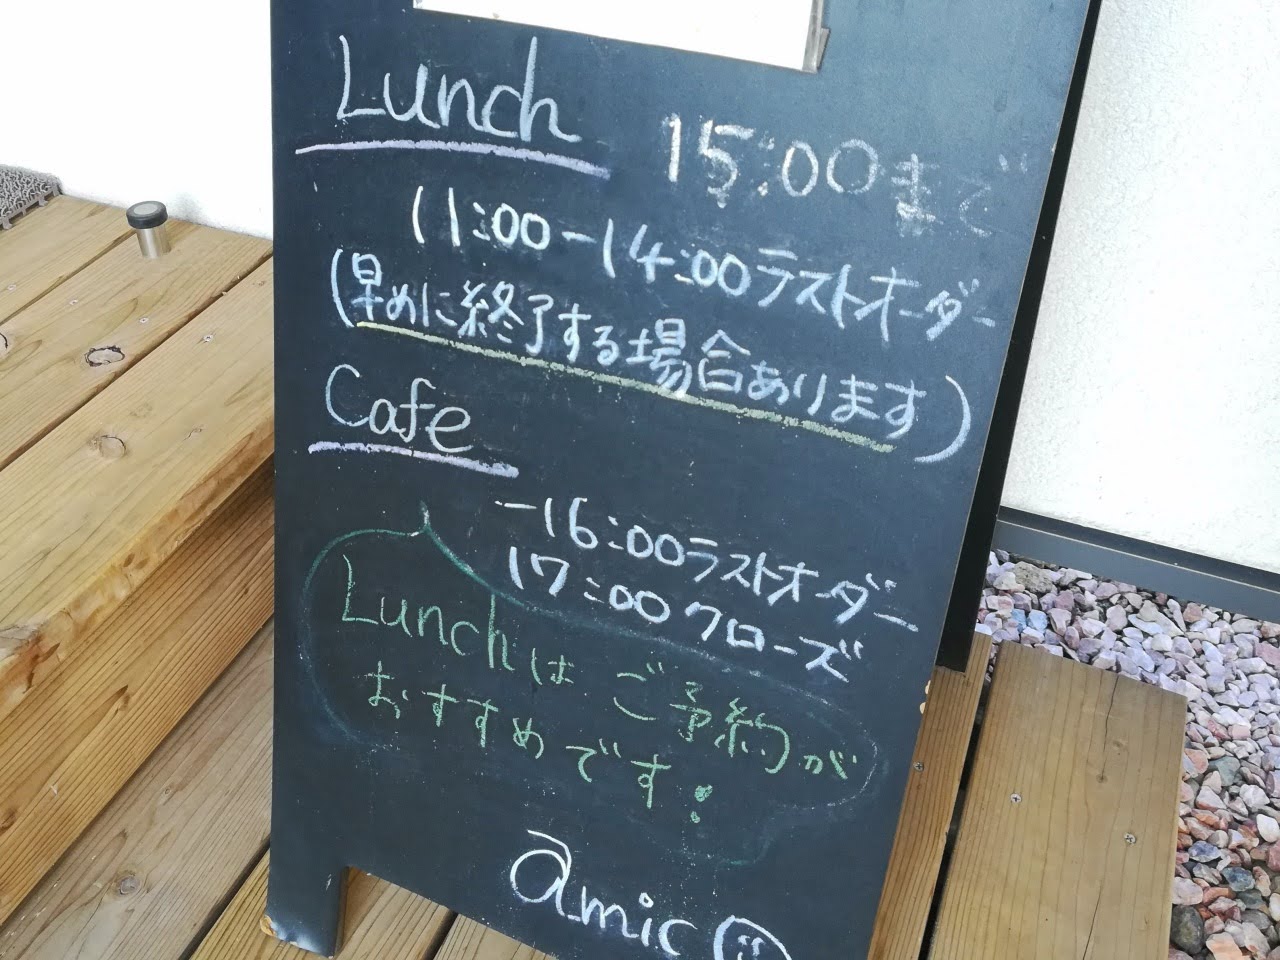 Lunch 15:00まで
11:00-14:00ラストオーダー
(早めに終了する場合あります)
Cafe
-16:00ラストオーダー
17:00クローズ
Lunchはご予約が
おすすめです!
amic